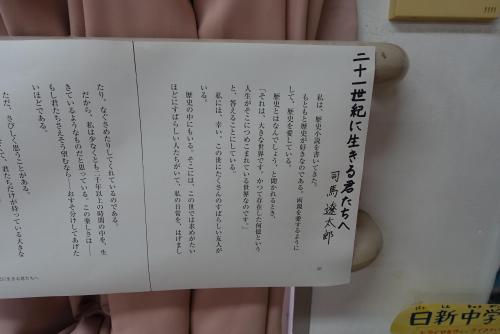 二十一世紀に生きる君たちへ
司馬遼太郎
私は、歴史小説を書いてきた。
もともと歴史が好きなのである。両親を愛するように
して、歴史を愛している。
歴史とはなんでしょう、と聞かれるとき、
「それは、大きな世界です。かつて存在した何億という
人生がそこにつめこまれている世界なのです。」
と、答えることにしている。
私には、幸い、この世にたくさんのすばらしい友人が
いる。
歴史の中にもいる。そこには、この世では求めがたい
ほどにすばらしい人たちがいて、私の日常を、はげまし
たり、なぐさめたりしてくれているのである。
だから、私は少なくとも二千年以上の時間の中を、生
きているようなものだと思っている。この楽しさは——
もし君たちさえそう望むなら——おすそ分けしてあげた
いほどである。
ただ、さびしく思うことがある。
君たちだけが持っている大きな
に生きる君たちへ
日新中学